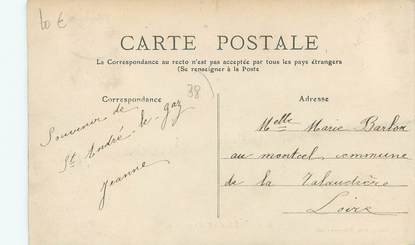 10 €
CARTE POSTALE
La Correspondance au recto n'est pas acceptée par tous les pays étrangers
(Se renseigner à la Poste
Correspondance
38
Adresse
Souvenir de
St André-le-gaz
Jeanne
Melle Marie Barlou
au montcel, commune
de la Talaudière
Loire